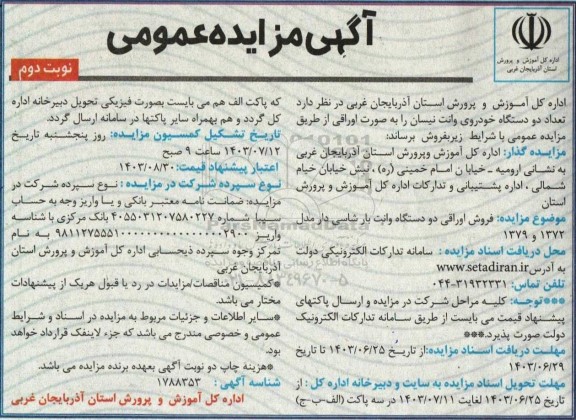 آگهی مزایده عمومی
نوبت دوم
اداره کل آموزش و پرورش
استان آذربایجان غربی
اداره کل آموزش و پرورش استان آذربایجان غربی در نظر دارد
تعداد دو دستگاه خودروی وانت نیسان را به صورت اوراقی از طریق
مزایده عمومی با شرایط زیربفروش برساند:
مزایده گذار: اداره کل آموزش وپرورش استان آذربایجان غربی
به نشانی ارومیه - خیابان امام خمینی (ره) ، نبش خیابان خیام
شمالی ، اداره پشتیبانی و تدارکات اداره کل آموزش و پرورش
استان
موضوع مزایده: فروش اوراقی دو دستگاه وانت بار شاسی دار مدل
۱۳۷۲ و ۱۳۷۹
محل دریافت اسناد مزایده : سامانه تدارکات الکترونیکی دولت
به آدرس www.setadiran.ir
تلفن تماس: ۳۱۹۳۲۳۳۱-۰۴۴
***توجه: کلیه مراحل شرکت در مزایده و ارسال پاکتهای
پیشنهاد قیمت می بایست از طریق سامانه تدارکات الکترونیک
دولت صورت پذیرد.***
مهلت دریافت اسناد مزایده:از تاریخ ۱۴۰۳/۰۶/۲۵ تا تاریخ
۱۴۰۳/۰۶/۲۹
مهلت تحویل اسناد مزایده به سایت و دبیرخانه اداره کل : از
تاریخ ۱۴۰۳/۰۶/۲۵ لغایت ۱۴۰۳/۰۷/۱۱ در سه پاکت (الف-ب-ج)
که پاکت الف هم می بایست بصورت فیزیکی تحویل دبیرخانه اداره
کل گردد و هم بهمراه سایر پاکتها در سامانه ارسال گردد.
تاریخ تشکیل کمسیون مزایده: روز پنجشنبه تاریخ
۱۴۰۳/۰۷/۱۲ ساعت ۹ صبح
اعتبار پیشنهاد قیمت: ۱۴۰۳/۰۸/۳۰
نوع سپرده شرکت در مزایده : نوع سپرده شرکت در
مزایده: ضمانت نامه معتبر بانکی و یا واریز وجه به حساب
سیبا شماره ۴۰۵۵۰۳۱۲۰۷۵۸۰۲۲۷ بانک مرکزی با شناسه
واریز به نام
تمرکز وجوه سپرده ذیحسابی اداره کل آموزش و پرورش استان
آذربایجان غربی
*کمیسیون مناقصات/مزایدات در رد یا قبول هریک از پیشنهادات
مختار می باشد.
*سایر اطلاعات و جزئیات مربوط به مزایده در اسناد و شرایط
عمومی و خصوصی مندرج می باشد که جزء لاینفک قرارداد خواهد
بود.
*هزینه چاپ دو نوبت آگهی بعهده برنده مزایده می باشد.
شناسه آگهی : ۱۷۸۸۳۵۳
اداره کل آموزش و پرورش استان آذربایجان غربی